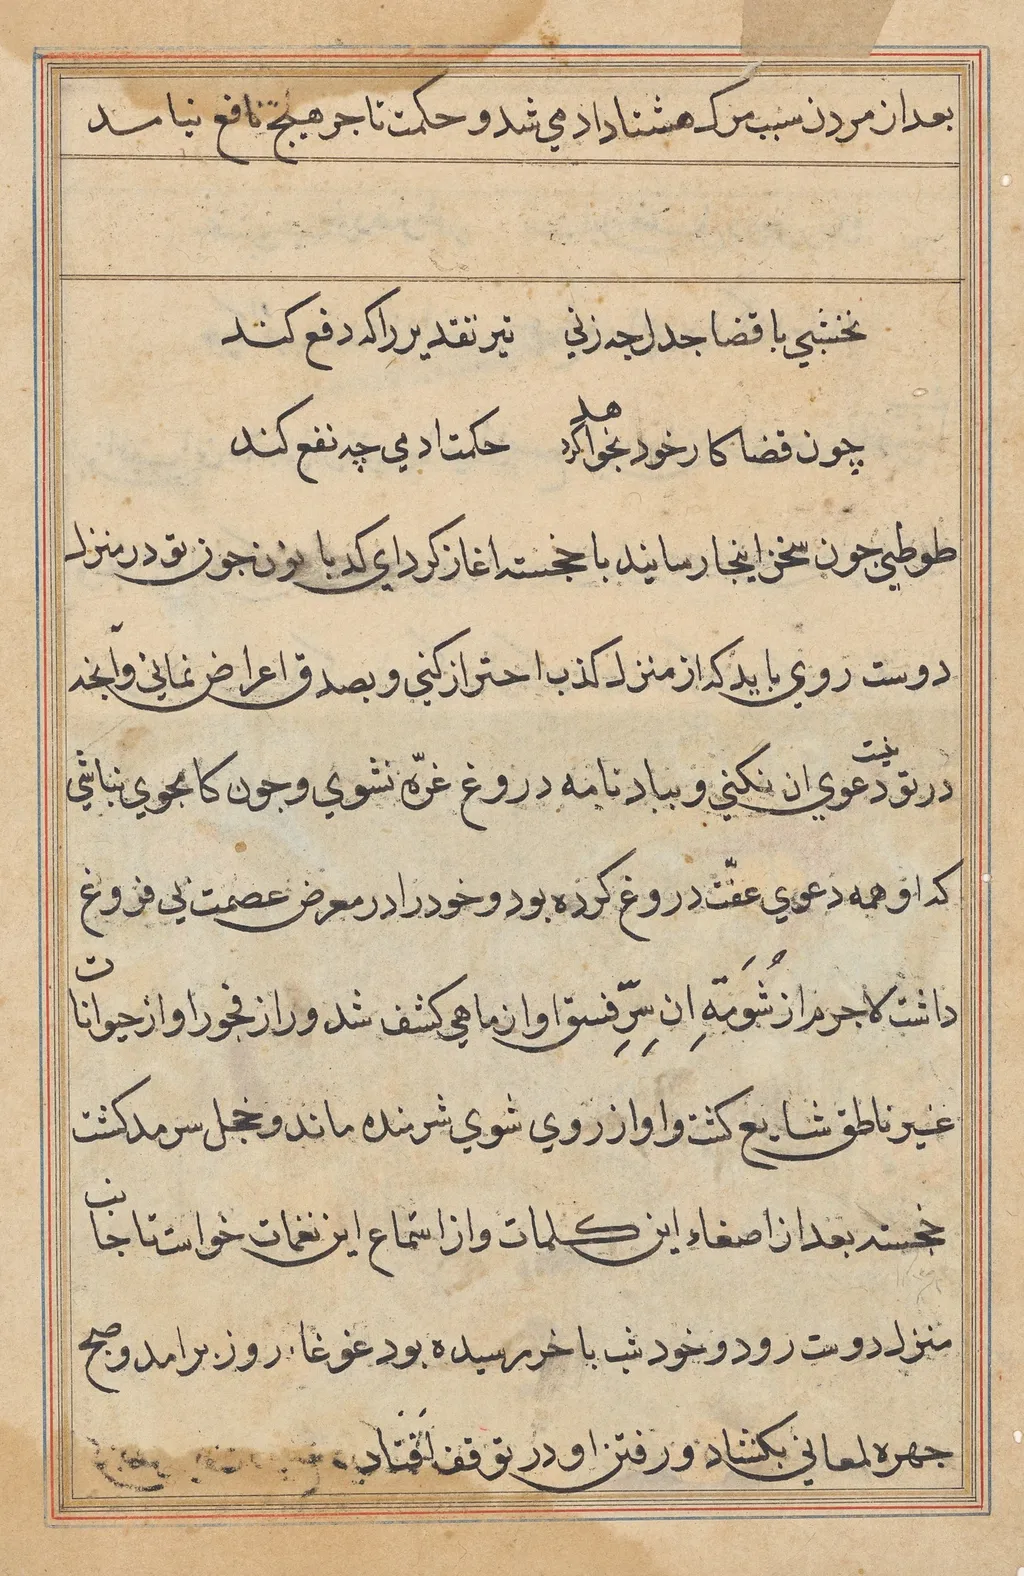 بعد از مردن سبب مرک هشتاد ادمي شد و حکمت تاجر هیچ نافع نیامد
نخشبي با قضا جدل چه زني تیر تقدیر را که دفع کند
چون قضا کار خود بخواهد کرد حکمت ادمي چه نفع کند
طوطي جون سخن اینجا رسانید با خجسته اغاز کرد اي کدبانو تون جون تو در منزل
دوست روي باید که از منزل کذب احتراز کني و بصدق اعراض نمائي و آنخه
در تو نیست دعوي ان نکني و بباد نامه دروغ غرّه نشوي و جون کامجوي نباشي
که او همه دعوي عفّت دروغ کرده بود و خود را در معرض عصمت بي فروغ
داشت لاجرم از شُومَةِ ان سِرِّ فسق او از ماهي کشف شد و راز فجور او از حیوانات
غیر ناطق شایع کشت و او از روي شوي شرمنده ماند و خجل سرمد کشت
خجسته بعد از اصغاء این کلمات و از استماع این نغمات خواست تا جانب
منزل دوست رود و خود شب باخر رسیده بود غوغاء روز برامد و صبح
جهره لمعاني بکشاد و رفتن او در توقف افتاد